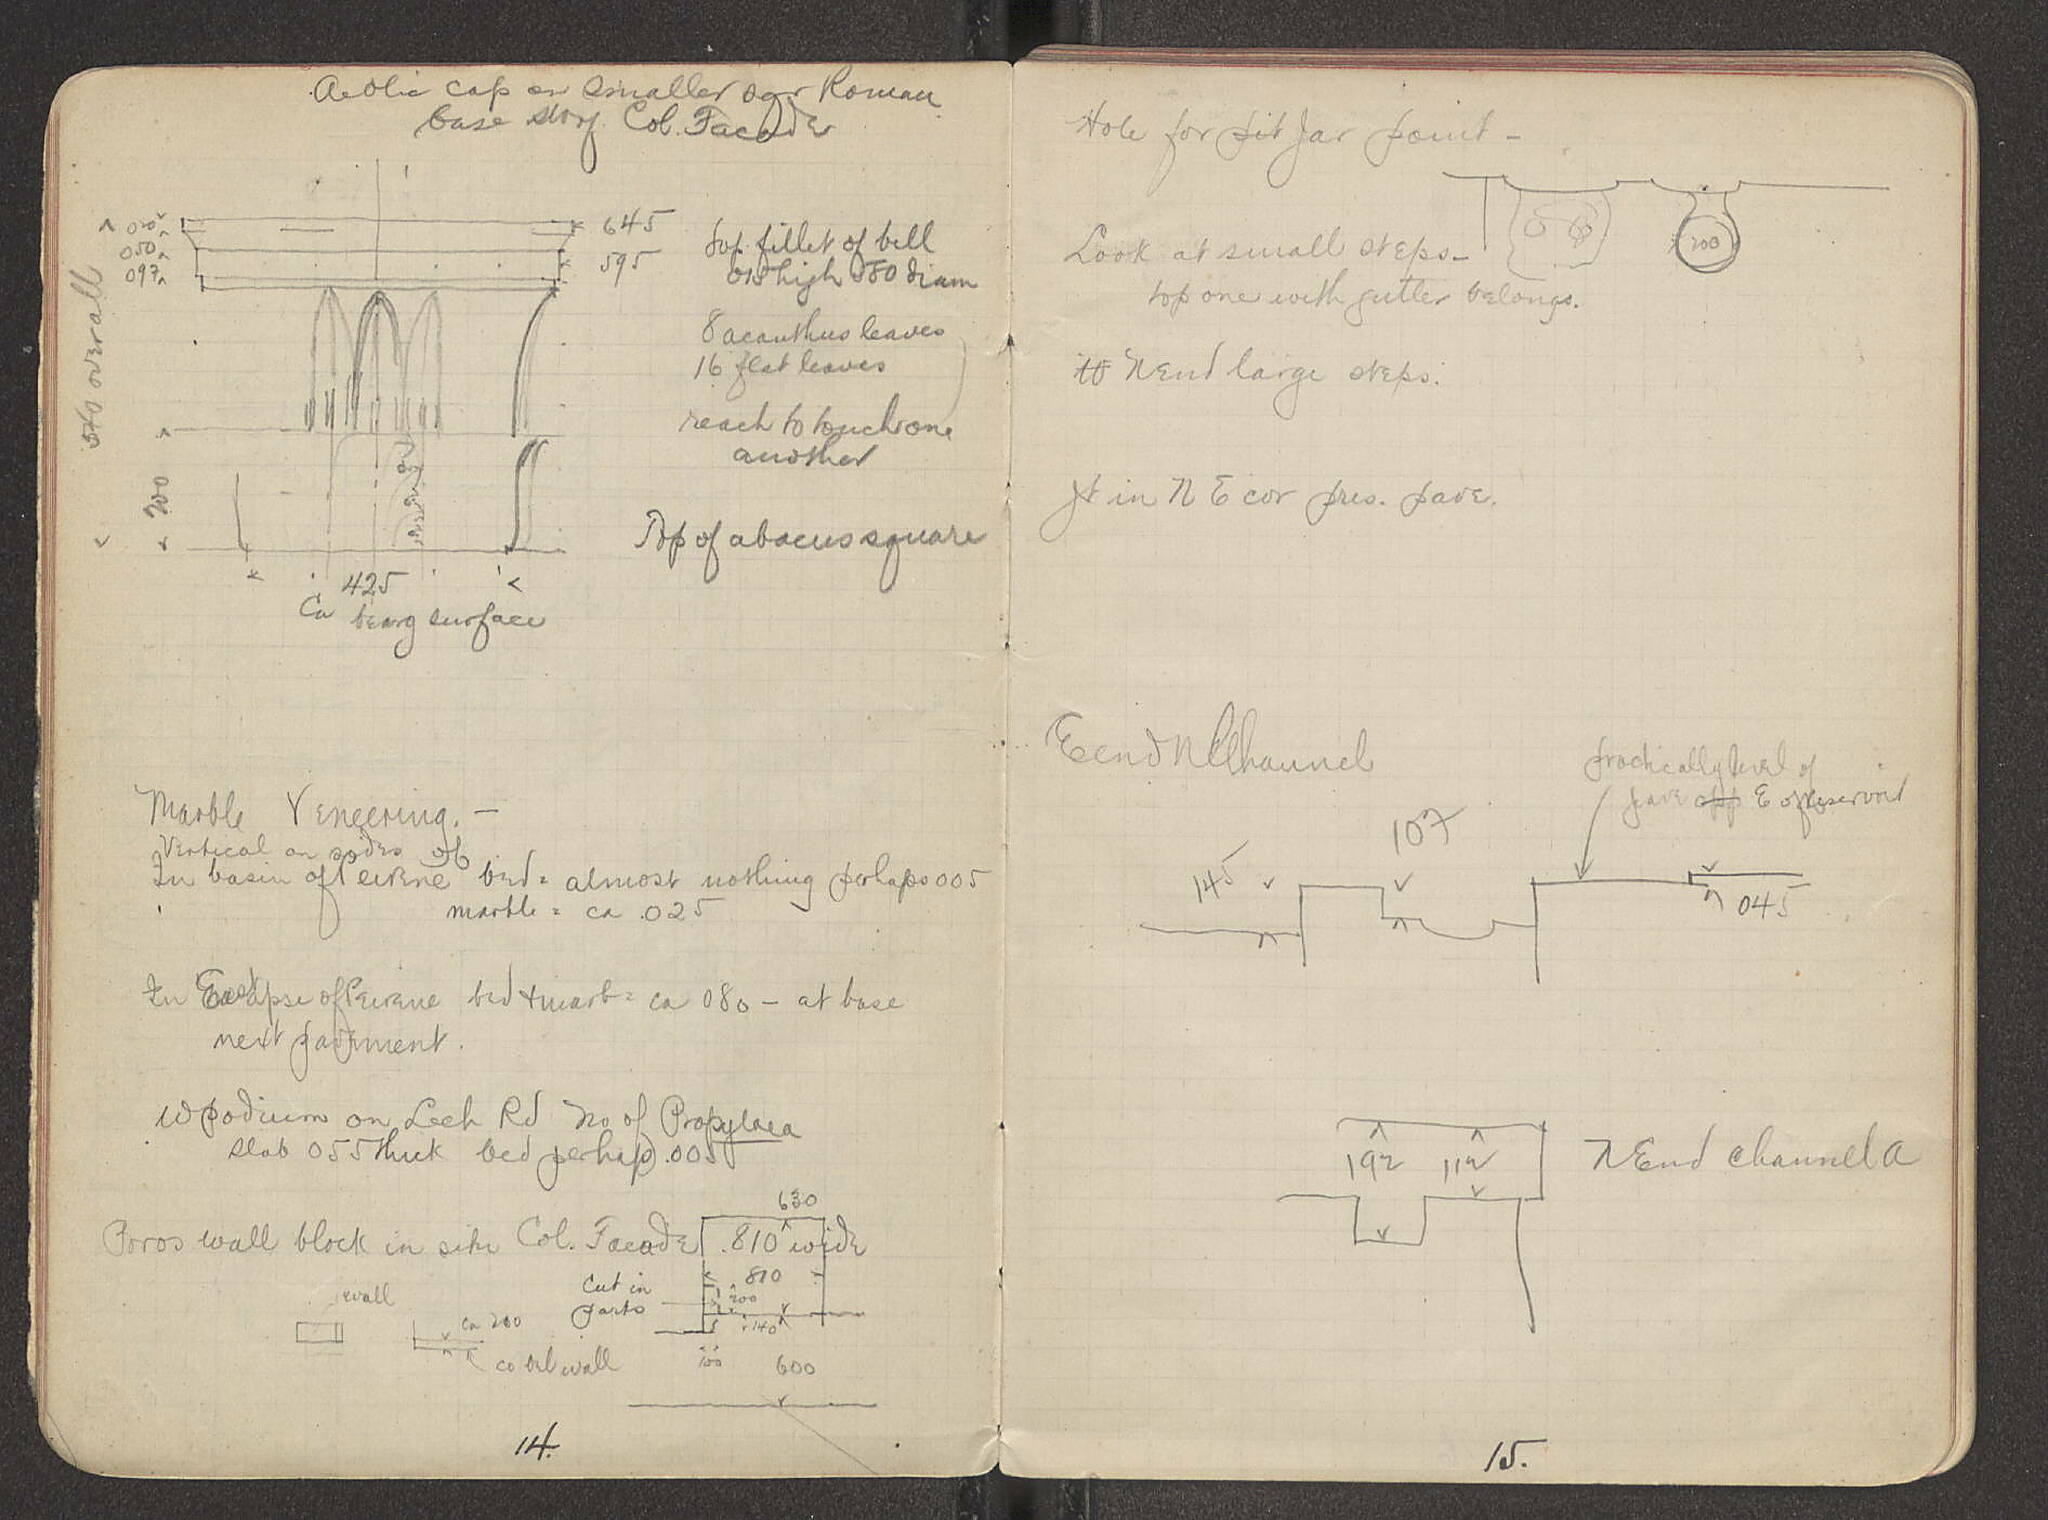 Aeolic cap on smaller sqr Roman
base Col. Facade
020
050
097
540 over all
200
645
595
top fillet of bell
015 high 580 diam
8 acanthus leaves
16 flat leaves
reach to touch one
another
Top of abacus square
425
Ca bearg surface
Marble Veneering. —
Vertical on sides of
In basin of Peirene bed = almost nothing perhaps 005
marble = ca .025
In East apse of Peirene bed + marb = ca 080 — at base
next pavement.
W podium on Lech Rd No of Propylaea
slab 055 thick bed perhaps .005
Poros wall block in situ Col. Facade .810 wide
630
810
Cut in
parts
200
140
100
600
wall
ca 200
wall
14.
Hole for pit jar point —
200
Look at small steps —
top one with gutter belongs.
N End large steps.
Jt in N E cor pres. pave.
E end N Channel
practically level of
pave opp E of Reservoir
145
107
045
192 112
N End channel A
15.